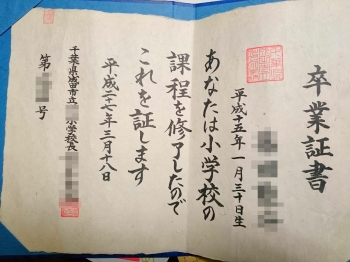 卒業証書
平成十五年一月三十日生
あなたは小学校の
課程を修了したので
これを証します
平成二十七年三月十八日
千葉県成田市立 小学校長
第 号